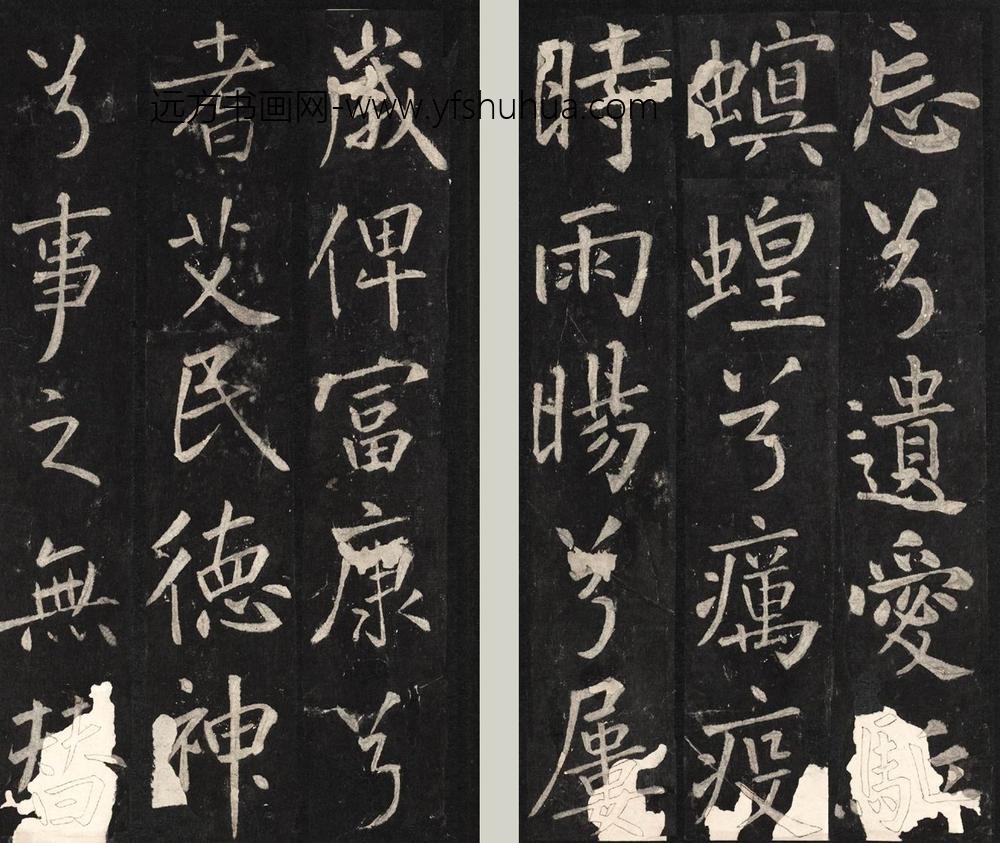 忘兮遺愛駈
螟蝗兮癘疫
時雨暘兮屢
歲俾富康兮
耆艾民德神
兮事之無替
远方书画网-www.yfshuhua.com